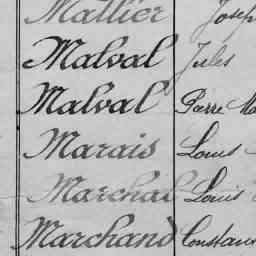 Mallier Josep
Malval Jules
Malval Pierre Ma
Marais Louis
Marchal Louis
Marchand Constan